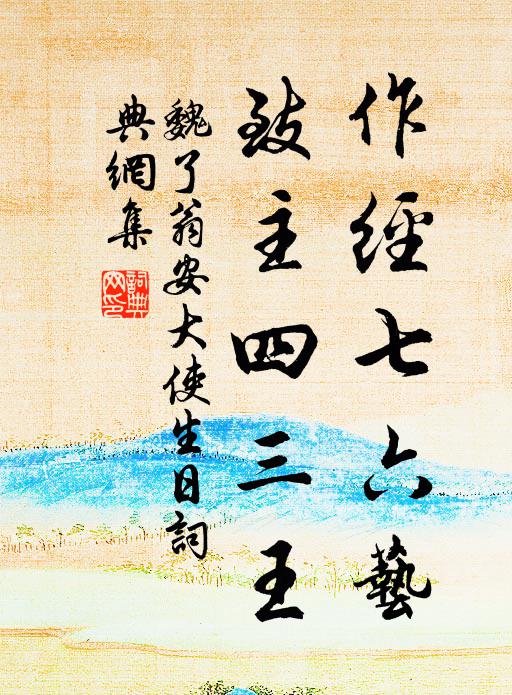 作經七六藝
致主四三王
魏了翁安大使生日詞
典網集
詞典
网印